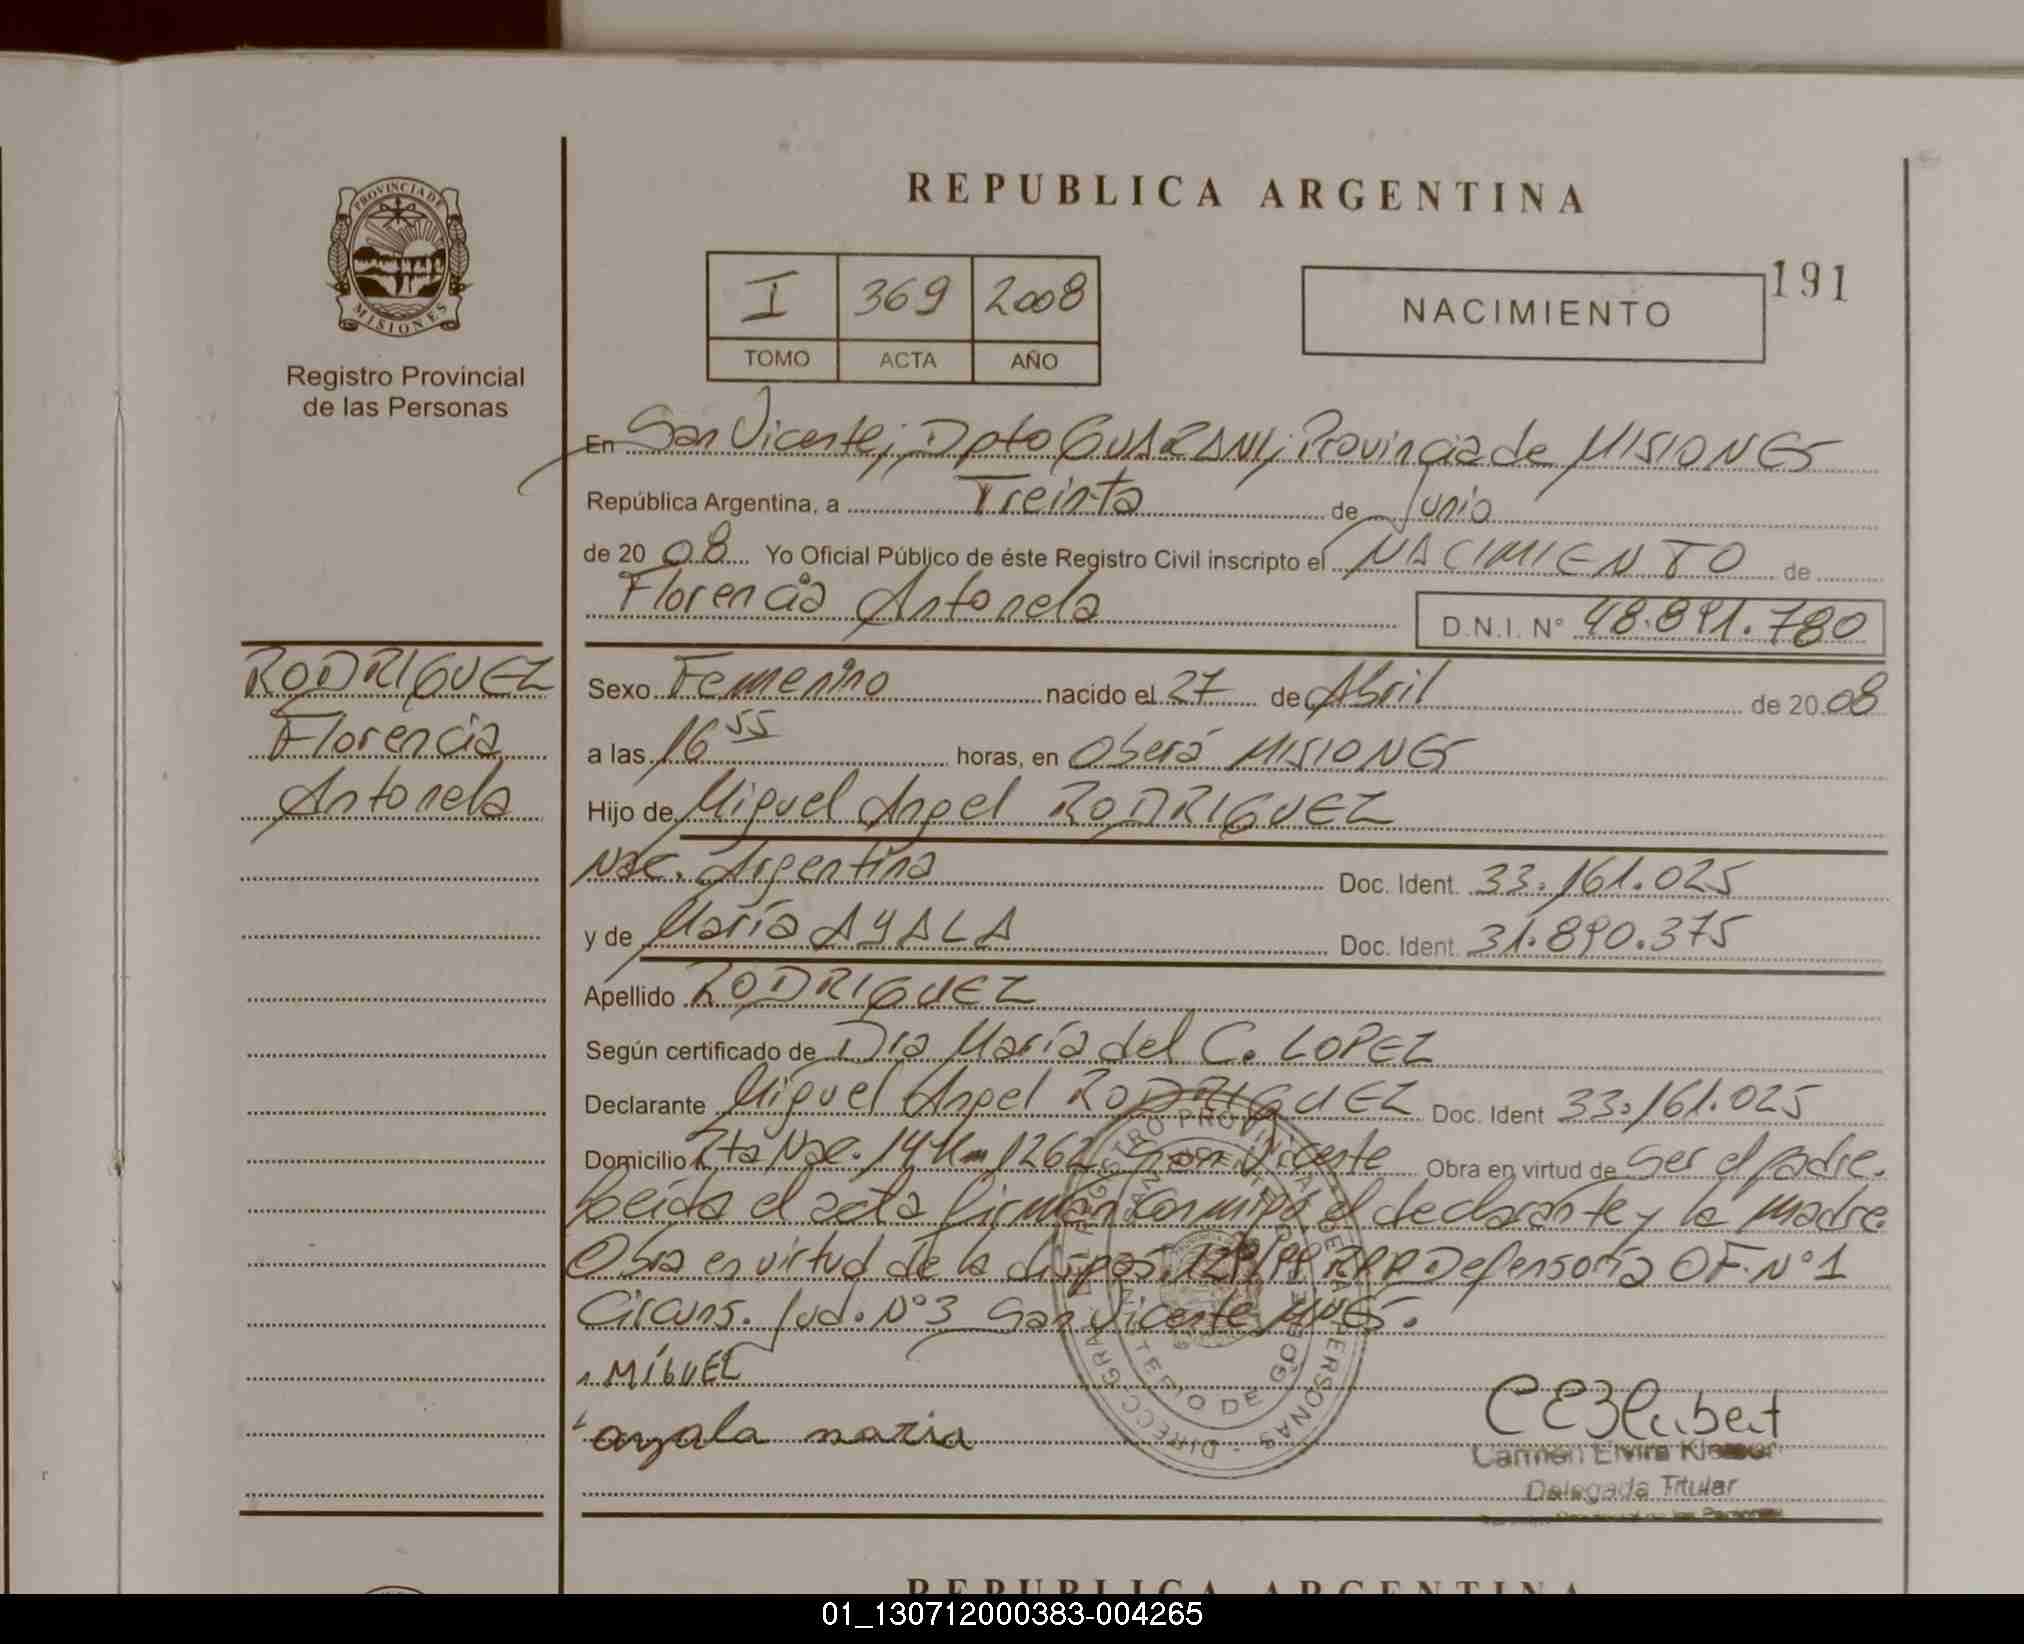 PROVINCIA DE
MISIONES
Registro Provincial
de las Personas
REPUBLICA ARGENTINA
I 369 2008
TOMO ACTA AÑO
NACIMIENTO
191
En San Vicente, Dpto GUARANI, Provincia de MISIONES
República Argentina, a Treinta de Junio
de 20 08 Yo Oficial Público de éste Registro Civil inscripto el NACIMIENTO de
Florencia Antonela
D.N.I. N° 48.891.780
RODRIGUEZ
Florencia
Antonela
Sexo Femenino nacido el 27 de Abril de 20 08
a las 16 55 horas, en Oberá MISIONES
Hijo de Miguel Angel RODRIGUEZ
Nac. Argentina Doc. Ident. 33.161.025
y de María AYALA Doc. Ident. 31.890.375
Apellido RODRIGUEZ
Según certificado de Dra María del C. LOPEZ
Declarante Miguel Angel RODRIGUEZ Doc. Ident 33.161.025
Domicilio Rta Nac. 14 Km 1262 San Vicente Obra en virtud de ser el padre.
Leída el acta firman conmigo el declarante y la madre.
Obra en virtud de la dispos. RPP Defensoría OF. N°1
Circuns. Jud. N°3 San Vicente MNES.
MIGUEL
ayala maria
Carmen Elvira
Delegada Titular
REPUBLICA ARGENTINA
01_130712000383-004265